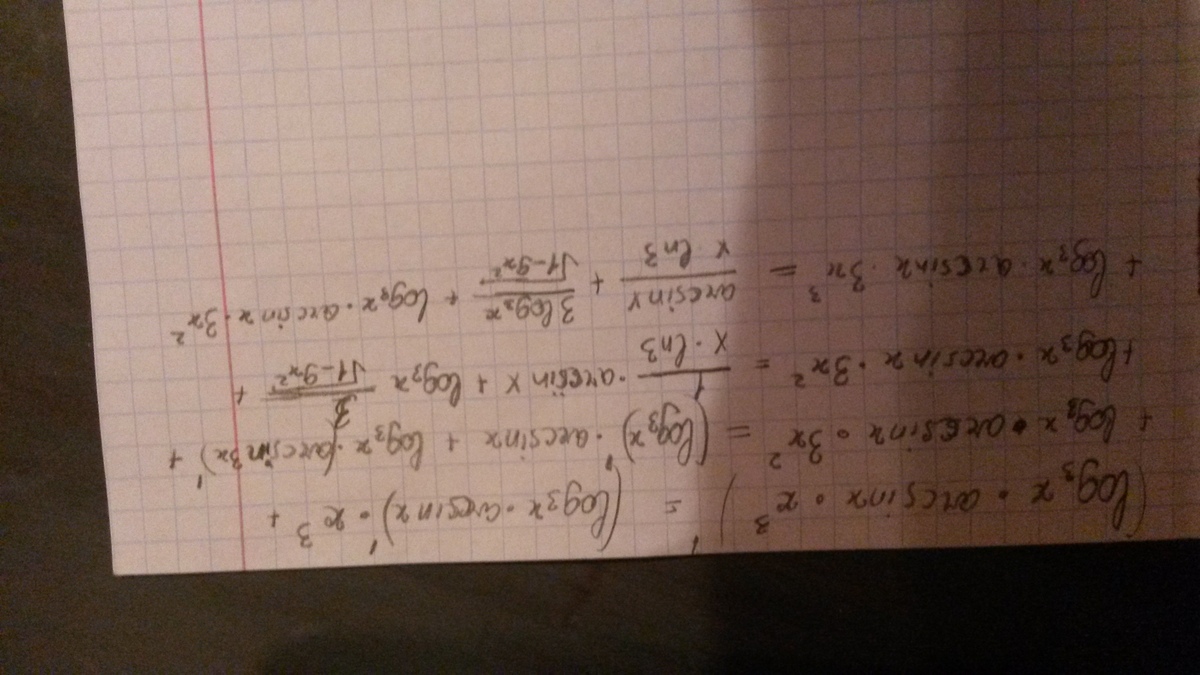 (log₃ x · arcsin x · x³)' = (log₃x · arcsin x)' · x³ +
+ log₃ x · arcsin x · 3x² = (log₃x)' · arcsin x + log₃ x · (arcsin 3x)' +
+ log₃ x · arcsin x · 3x² = 1/(x · ln3) · arcsin x + log₃ x 3/√(1-9x²) +
+ log₃ x · arcsin x · 3x³ = arcsin x/(x · ln3) + 3 log₃ x/√(1-9x²) + log₃ x · arcsin x · 3x²